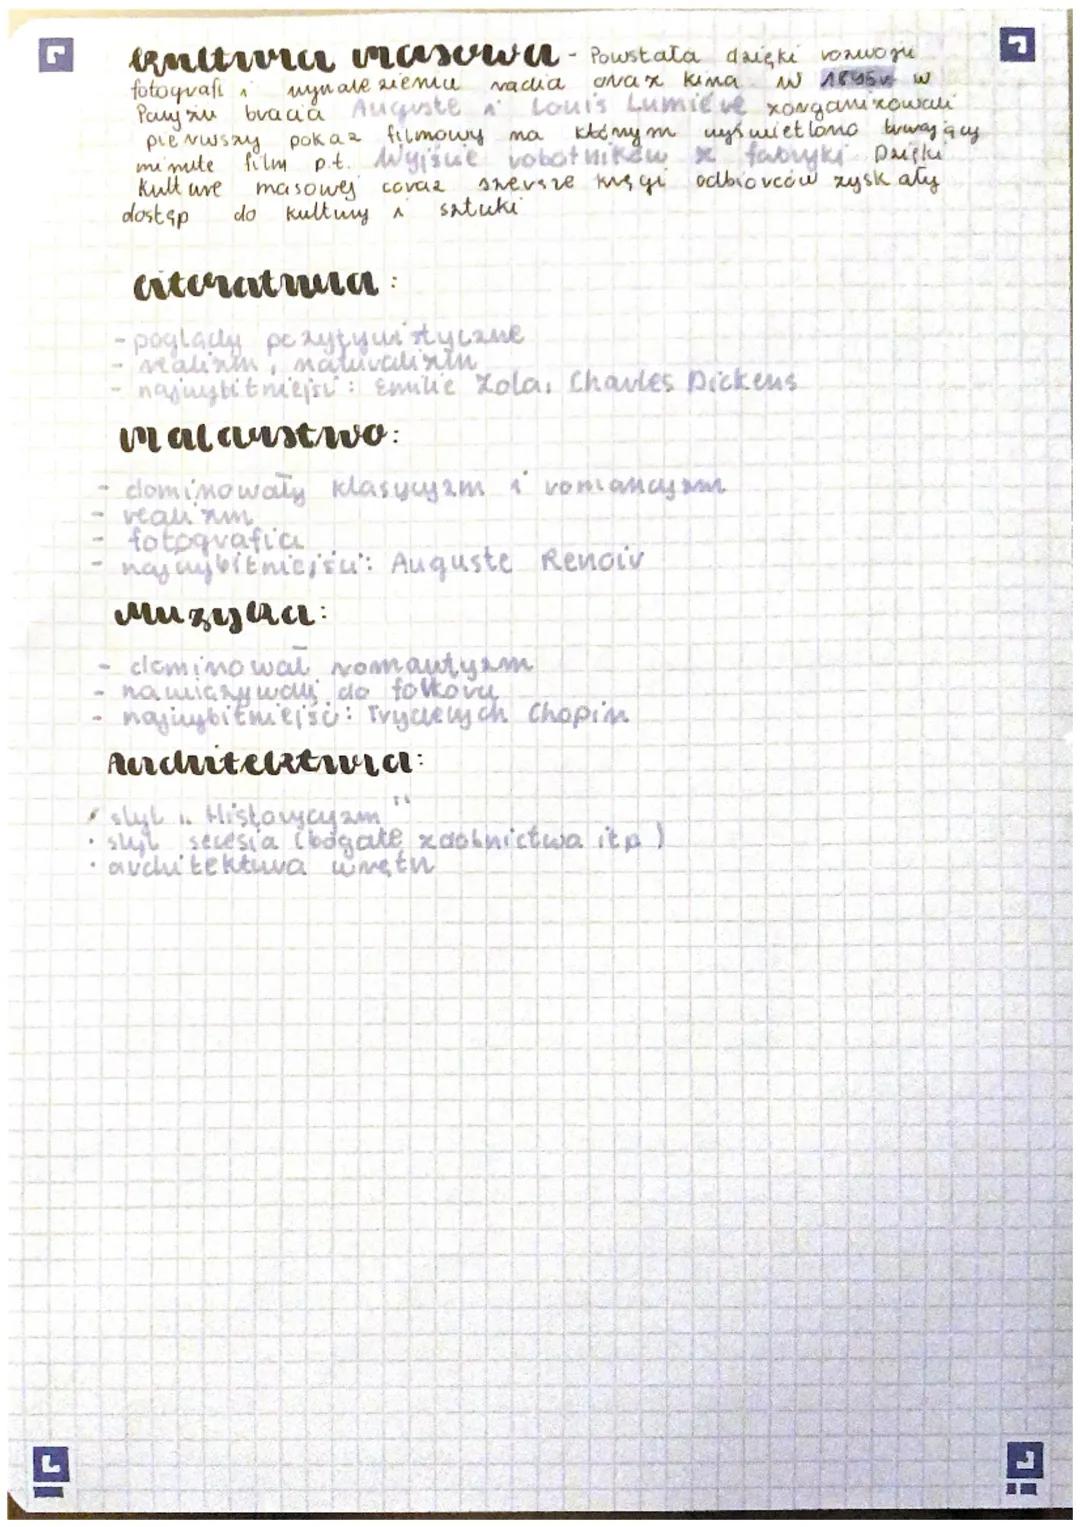 Kultura masowa - Powstała dzięki rozwoju
fotografi i wynalezieniu radia oraz kina w 1895r w
Paryżu bracia Auguste i Louis Lumiére zorganizowali
pierwszy pokaz filmowy na którym wyświetlono trwający
minute film p.t. Wyjście robotników z fabryki Dzięki
kulture masowej coraz szersze kręgi odbiorców zyskały
dostęp do kultury i sztuki
Literatura:
- poglądy pozytywistyczne
- realizm, naturalizm
- najwybitniejsi: Emilie Zola, Charles Dickens
Malarstwo:
- dominowały klasycyzm i romancyzm
- realizm
- fotografia
- najwybitniejsi: Auguste Renoir
Muzyka:
- dominował romantyzm
- nawiązywały do folkoru
- najwybitniejsi: Fryderych Chopin
Architektura:
styl ,, Historycyzm "
• styl secesia (bogate zdobnictwa itp)
• architektura wnętrz